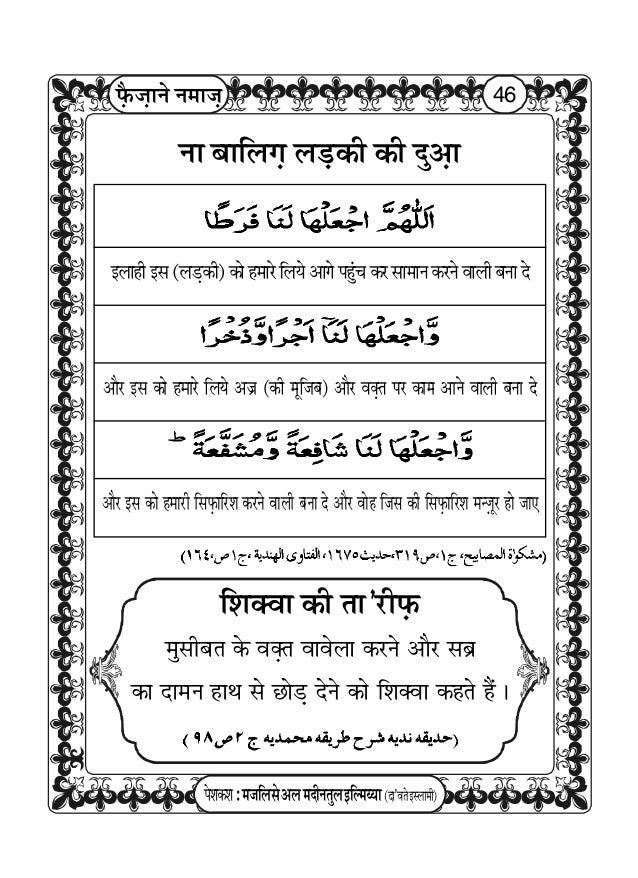 फ़ैज़ाने नमाज़
46
ना बालिग़ लड़की की दुआ़
اَللّٰهُمَّ اجْعَلْهَا لَنَا فَرَطًا
इलाही इस (लड़की) को हमारे लिये आगे पहुंच कर सामान करने वाली बना दे
وَّاجْعَلْهَا لَنَآ اَجْرًاوَّذُخْرًا
और इस को हमारे लिये अज्र (की मूजिब) और वक़्त पर काम आने वाली बना दे
وَّاجْعَلْهَا لَنَا شَافِعَةً وَّمُشَفَّعَةً ؕ
और इस को हमारी सिफ़ारिश करने वाली बना दे और वोह जिस की सिफ़ारिश मन्ज़ूर हो जाए
(مشکوٰة المصابیح، ج١،ص٣١٩،حدیث١٦٧٥، الفتاوی الهندیة ،ج١ص،١٦٤)
शिक्वा की ता'रीफ़
मुसीबत के वक़्त वावेला करने और सब्र
का दामन हाथ से छोड़ देने को शिक्वा कहते हैं ।
(حدیقه ندیه شرح طریقه محمدیه ج ٢ص٩٨ )
पेशकश : मजलिसे अल मदीनतुल इल्मिय्या (दा'वते इस्लामी)